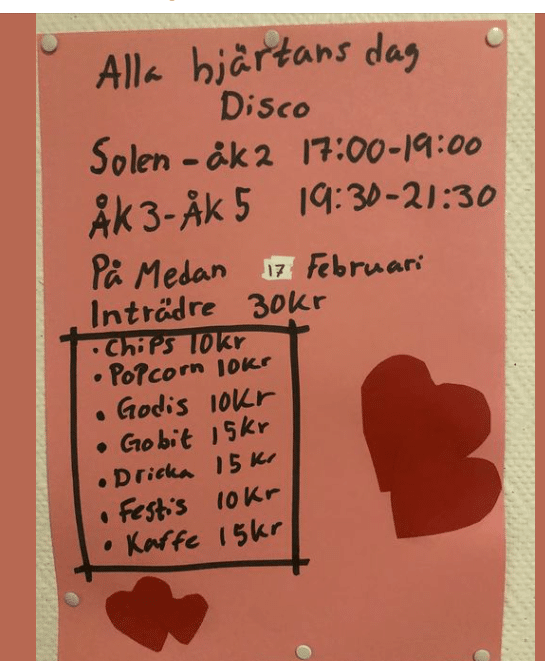 Alla hjärtans dag
Disco
Solen - åk 2 17:00-19:00
Åk 3-Åk 5 19:30-21:30
På Medan 17 Februari
Inträdre 30kr
• Chips 10kr
• Popcorn 10kr
• Godis 10kr
• Gobit 15kr
• Dricka 15 kr
• Festis 10kr
• Kaffe 15kr